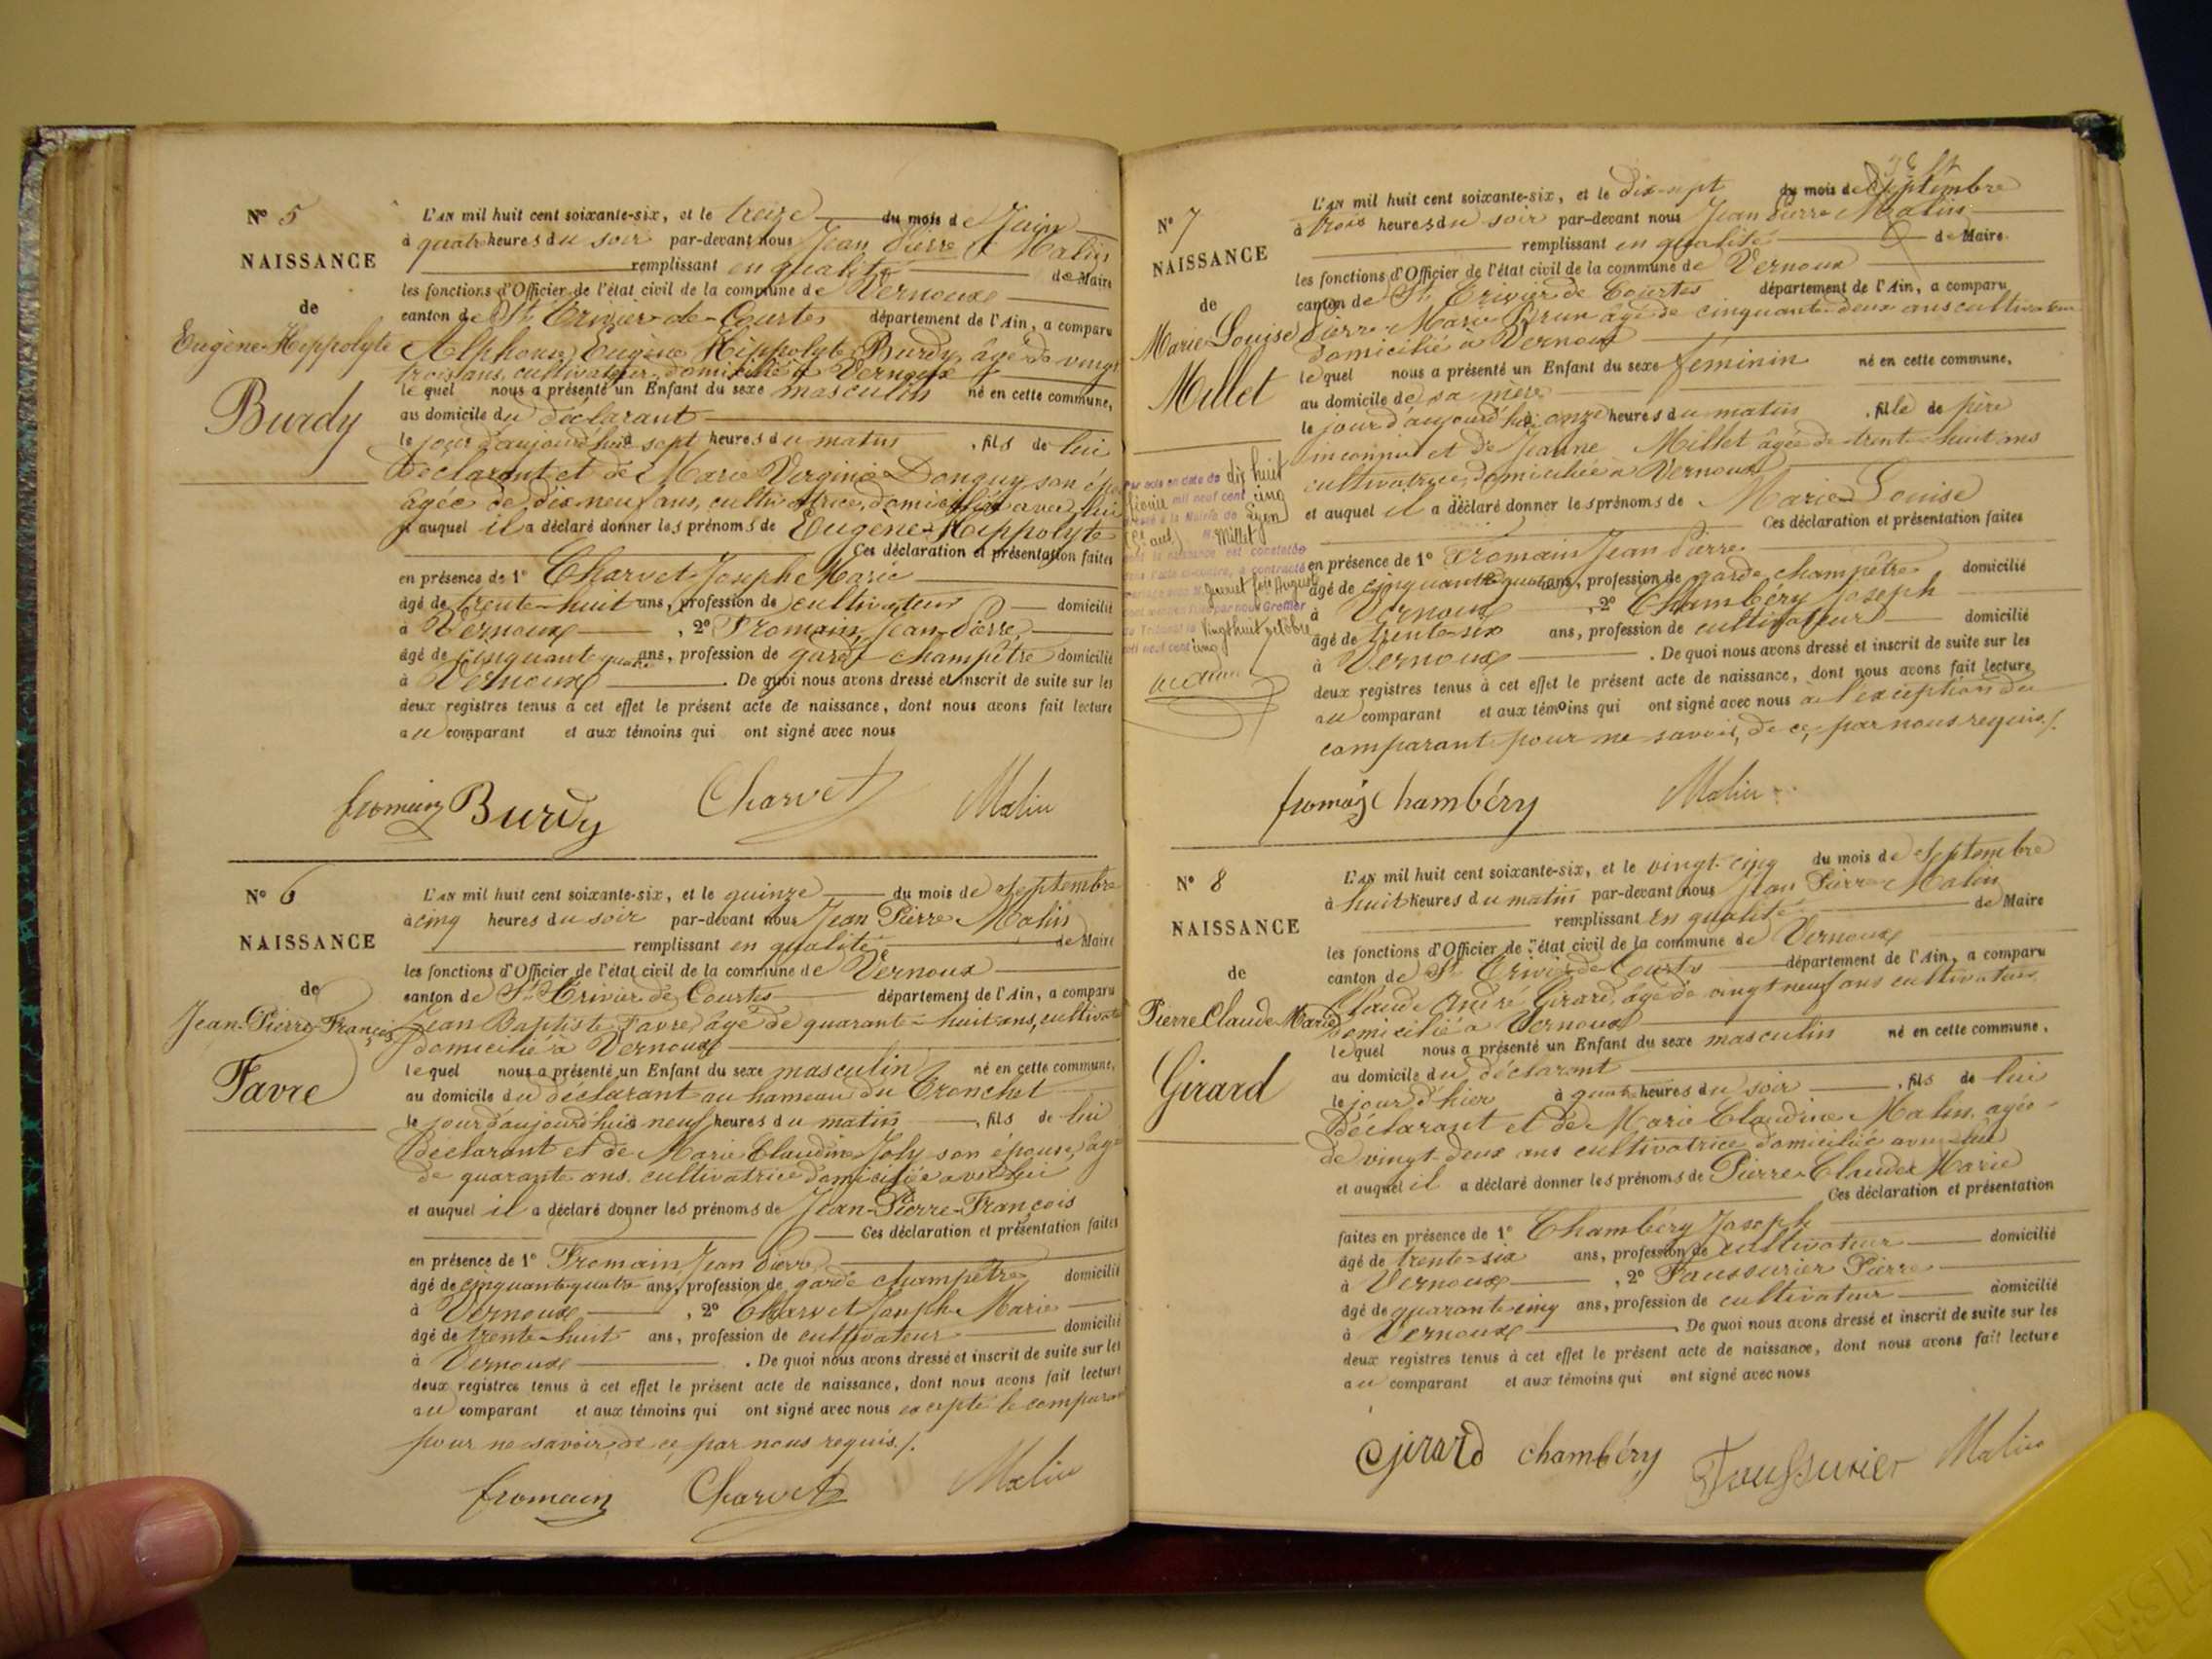 N° 5
NAISSANCE
de
Eugène-Hippolyte
Burdy
L'AN mil huit cent soixante-six, et le treize du mois de Juin
à quatre heures du soir par-devant nous Jean Pierre Malin
remplissant en qualité de Maire
les fonctions d'Officier de l'état civil de la commune de Vernoux
canton de St Trivier-de-Courtes département de l'Ain, a comparu
Alphonse Eugène Hippolyte Burdy, âgé de vingt
trois ans, cultivateur, domicilié à Vernoux
lequel nous a présenté un Enfant du sexe masculin né en cette commune,
au domicile du déclarant
le jour d'aujourd'hui à sept heures du matin, fils de lui
Déclarant et de Marie Virginie Donguy son
âgée de dix-neuf ans, cultivatrice, domiciliée avec lui
et auquel il a déclaré donner les prénoms de Eugène-Hippolyte
Ces déclaration et présentation faites
en présence de 1° Charvet Joseph Marie
âgé de trente-huit ans, profession de cultivateur domicilié
à Vernoux, 2° Fromain, Jean-Pierre
âgé de cinquante quatre ans, profession de garde champêtre domicilié
à Vernoux. De quoi nous avons dressé et inscrit de suite sur les
deux registres tenus à cet effet le présent acte de naissance, dont nous avons fait lecture
au comparant et aux témoins qui ont signé avec nous
fromain Burdy Charvet Malin
N° 6
NAISSANCE
de
Jean-Pierre-François
Favre
L'AN mil huit cent soixante-six, et le quinze du mois de Septembre
à cinq heures du soir par-devant nous Jean Pierre Malin
remplissant en qualité de Maire
les fonctions d'Officier de l'état civil de la commune de Vernoux
canton de St Trivier de Courtes département de l'Ain, a comparu
Jean Baptiste Favre, âgé de quarante-huit ans, cultivate
domicilié à Vernoux
lequel nous a présenté un Enfant du sexe masculin né en cette commune,
au domicile du déclarant au hameau du Tronchet
le jour d'aujourd'hui à neuf heures du matin, fils de lui
Déclarant et de Marie Claudine Joly son épouse, âgé
de quarante ans, cultivatrice domiciliée avec lui
et auquel il a déclaré donner les prénoms de Jean-Pierre-François
Ces déclaration et présentation faites
en présence de 1° Fromain Jean Pierre
âgé de cinquante quatre ans, profession de garde champêtre domicilié
à Vernoux, 2° Charvet Joseph Marie
âgé de trente-huit ans, profession de cultivateur domicilié
à Vernoux. De quoi nous avons dressé et inscrit de suite sur les
deux registres tenus à cet effet le présent acte de naissance, dont nous avons fait lecture
au comparant et aux témoins qui ont signé avec nous excepté le comparant
pour ne savoir, de ce par nous requis./.
fromain Charvet Malin
N° 7
NAISSANCE
de
Marie-Louise
Millet
Par acte en date du dix huit
mil neuf cent cinq
à la Mairie de Lyon
Millet
la naissance est constatée
a contracté
par nous Greffier
du Tribunal le vingt huit octobre
mil neuf cent cinq
L'AN mil huit cent soixante-six, et le dix-sept du mois de Septembre
à trois heures du soir par-devant nous Jean Pierre Malin
remplissant en qualité de Maire
les fonctions d'Officier de l'état civil de la commune de Vernoux
canton de St Trivier de Courtes département de l'Ain, a comparu
Pierre Marie Brun âgé de cinquante-deux ans cultivateur
domicilié à Vernoux
lequel nous a présenté un Enfant du sexe féminin né en cette commune,
au domicile de sa mère
le jour d'aujourd'hui à onze heures du matin, fille de père
inconnu et de Jeanne Millet âgée de trente-huit ans
cultivatrice, domiciliée à Vernoux
et auquel il a déclaré donner les prénoms de Marie-Louise
Ces déclaration et présentation faites
en présence de 1° Fromain Jean Pierre
âgé de cinquante quatre ans, profession de garde champêtre domicilié
à Vernoux, 2° Chambéry Joseph
âgé de trente-six ans, profession de cultivateur domicilié
à Vernoux. De quoi nous avons dressé et inscrit de suite sur les
deux registres tenus à cet effet le présent acte de naissance, dont nous avons fait lecture
au comparant et aux témoins qui ont signé avec nous à l'exception du
comparant pour ne savoir, de ce, par nous requis./.
fromain Chambéry Malin
N° 8
NAISSANCE
de
Pierre Claude Marie
Girard
L'AN mil huit cent soixante-six, et le vingt-cinq du mois de Septembre
à huit heures du matin par-devant nous Jean Pierre Malin
remplissant en qualité de Maire
les fonctions d'Officier de l'état civil de la commune de Vernoux
canton de St Trivier de Courtes département de l'Ain, a comparu
Claude André Girard, âgé de vingt neuf ans cultivateur
domicilié à Vernoux
lequel nous a présenté un Enfant du sexe masculin né en cette commune,
au domicile du déclarant
le jour d'hier à quatre heures du soir, fils de lui
Déclarant et de Marie Claudine Malin, agée
de vingt-deux ans cultivatrice domiciliée avec lui
et auquel il a déclaré donner les prénoms de Pierre-Claude Marie
Ces déclaration et présentation
faites en présence de 1° Chambéry Joseph
âgé de trente-six ans, profession de cultivateur domicilié
à Vernoux, 2° Foussurier Pierre
âgé de quarante cinq ans, profession de cultivateur domicilié
à Vernoux. De quoi nous avons dressé et inscrit de suite sur les
deux registres tenus à cet effet le présent acte de naissance, dont nous avons fait lecture
au comparant et aux témoins qui ont signé avec nous
Girard Chambéry Foussurier Malin